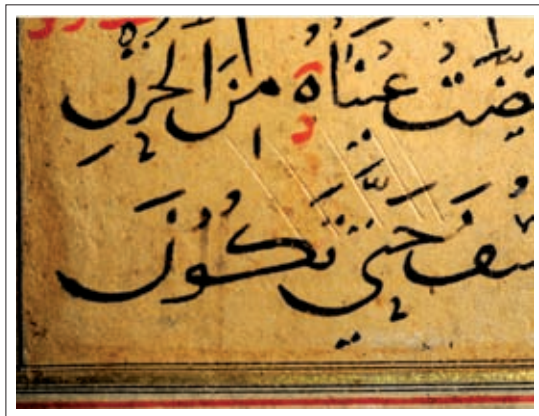 ضَّتْ عَيْنَاهُ مِنَ الْحُزْنِ
سُفَ حَتَّى تَكُونَ